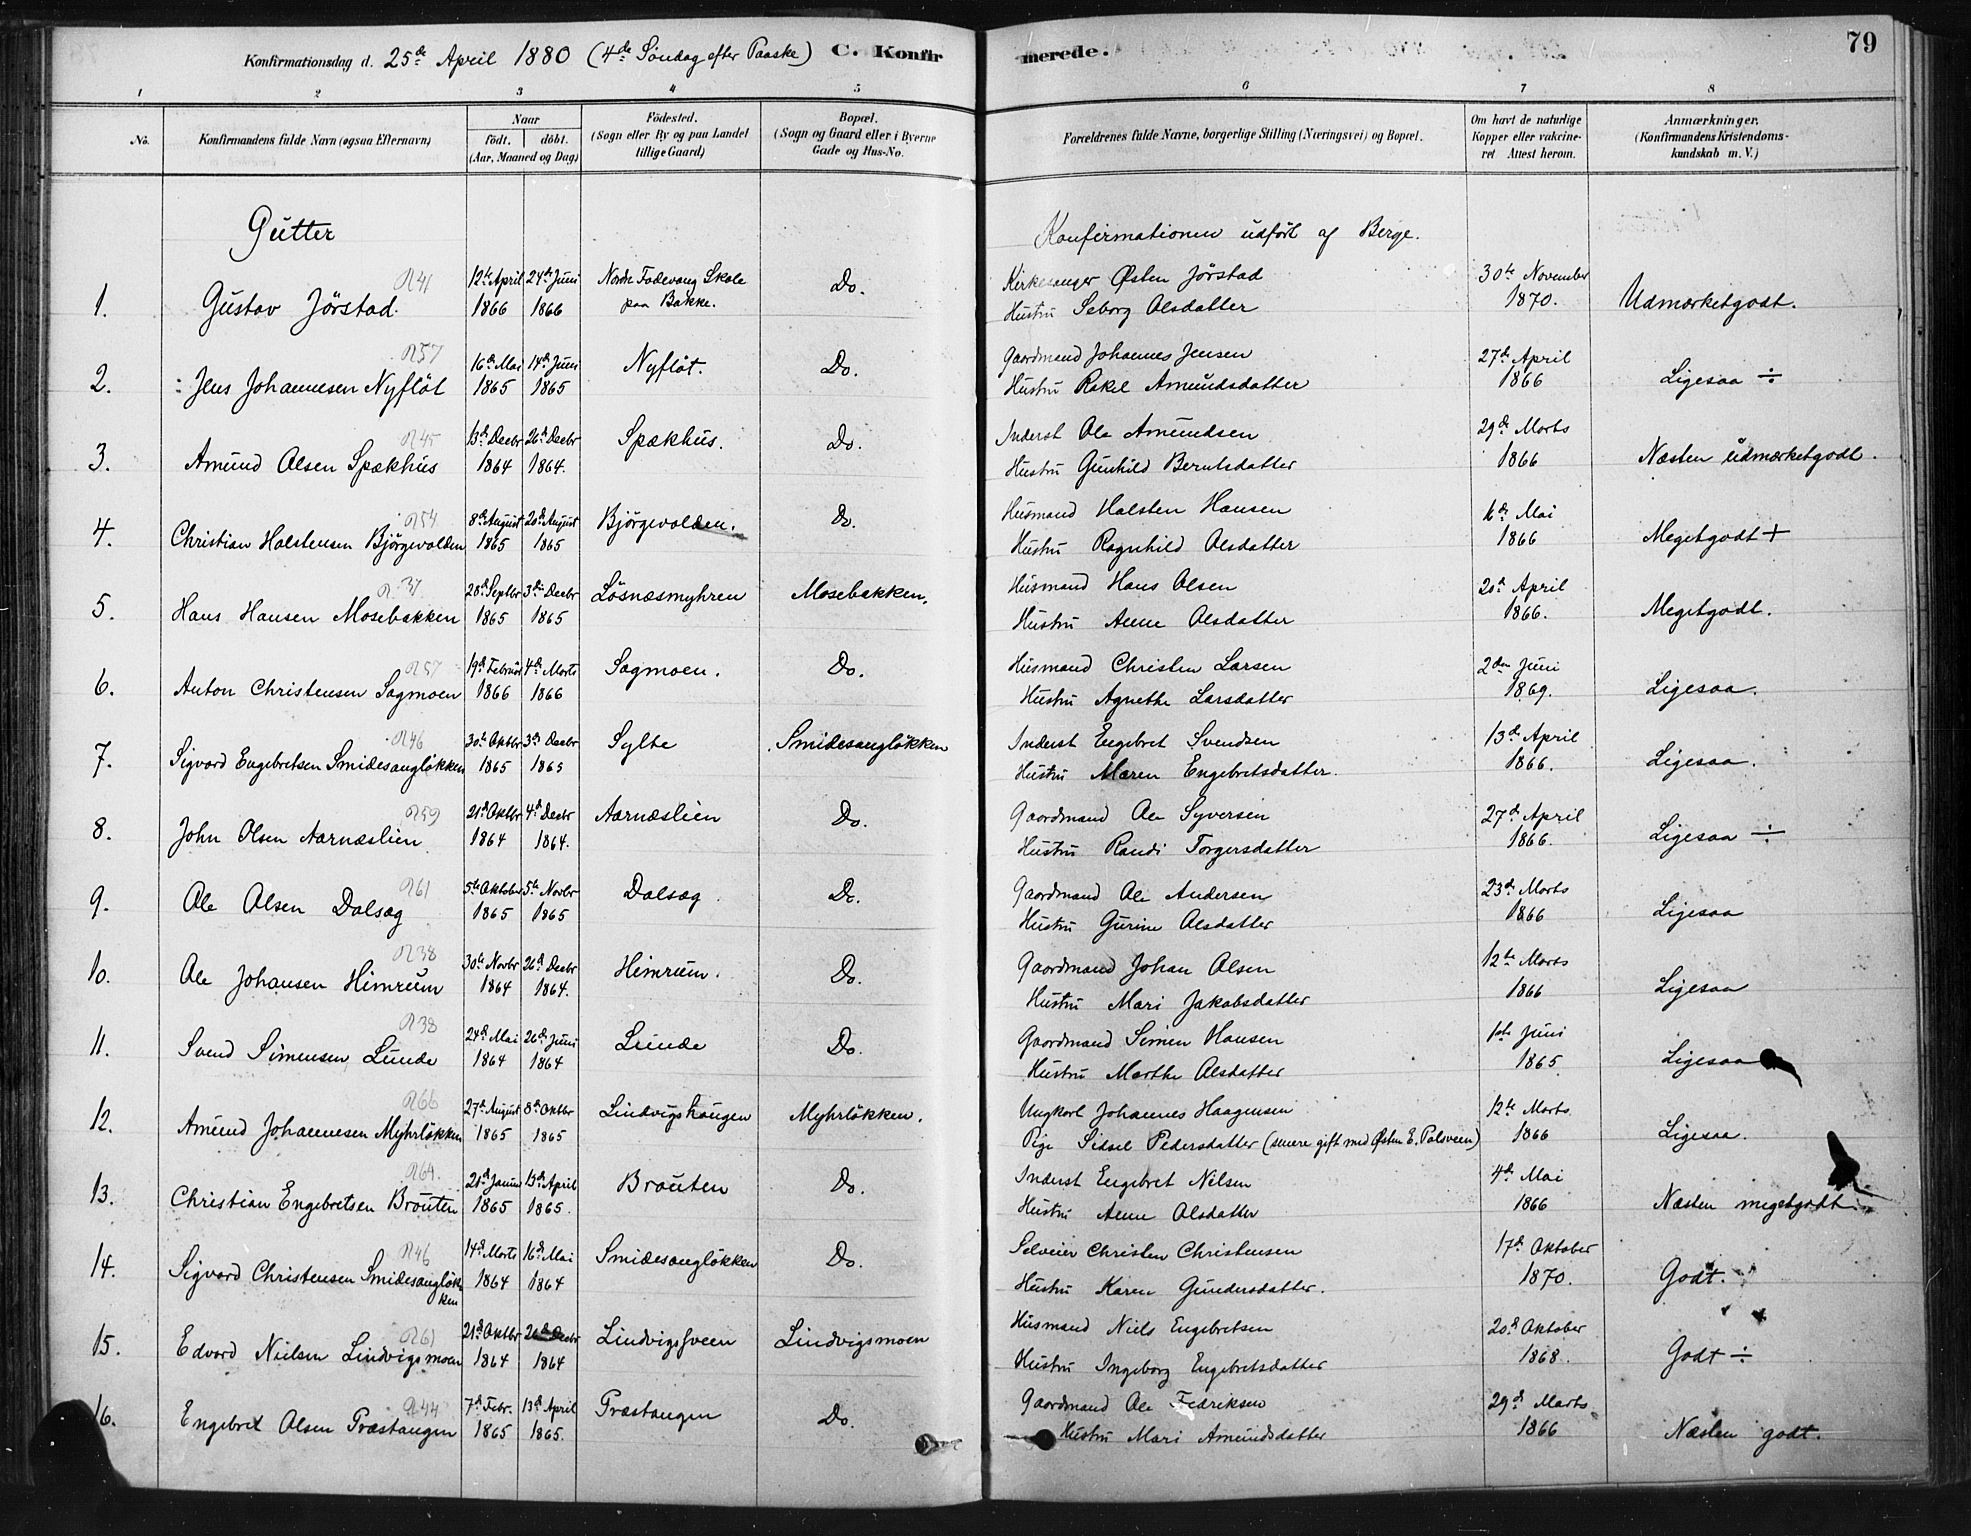 79
Konfirmationsdag d. 25de April 1880 (4de Søndag efter Paaske) C. Konfirmerede.
1 2 3 4 5 6 7 8
No. Konfirmandens fulde Navn (ogsaa Efternavn) Naar født. døbt. (Aar, Maaned og Dag) Fødested. (Sogn eller By og paa Landet tillige Gaard) Bopæl. (Sogn og Gaard eller i Byerne Gade og Hus-No. Forældrenes fulde Navne, borgerlige Stilling (Næringsvei) og Bopæl. Om havt de naturlige Kopper eller vakcineret Attest herom. Anmærkninger. (Konfirmandens Kristendomskundskab m. V.)
Gutter Konfirmationen udført af Berge.
R41 12te April 24de Juni Nordre Fodevang Skole Do. Kirkesanger Østen Jörstad 30te November
1. Gustav Jörstad. 1866 1866 paa Bakke. Hustru Seborg Olsdatter 1870. Udmærketgodt.
R57 16de Mai 14de Juni Nyflöt. Do. Gaardmand Johannes Jensen 27de April
2. Jens Johannesen Nyflöt 1865 1865 Hustru Rakel Amundsdatter 1866 Ligesaa ÷
R45 13de Decbr 26de Decbr Spækhus. Do. Inderst Ole Amundsen 29de Marts
3. Amund Olsen Spækhus 1864 1864. Hustru Gunhild Berntsdatter 1866 Næsten udmærketgodt.
R54 8de August 20de August Björgevolden. Do. Husmand Halsten Hansen 6te Mai
4. Christian Halstensen Björgevolden 1865 1865 Hustru Ragnhild Olsdatter 1866 Megetgodt +
R. 37. 28de Septbr 3die Decbr Lösnæsmyhren Mosebakken. Husmand Hans Olsen 20de April
5. Hans Hansen Mosebakken 1865 1865 Hustru Anne Olsdatter 1866. Megetgodt.
R57 19de Februar 4de Marts Sagmoen. Do. Husmand Christen Larsen 2den Juni
6. Anton Christensen Sagmoen 1866 1866 Hustru Agnethe Larsdatter 1869. Ligesaa.
R46 30te Oktbr 3die Decbr Sylte Smidesangløkken Inderst Engebret Svendsen 13de April
7. Sigvard Engebretsen Smidesangløkken 1865 1865 Hustru Maren Engebretsdatter. 1866. Ligesaa.
R59 21de Oktbr 4de Decbr Aarnæslien Do. Gaardmand Ole Syversen 27de April
8. John Olsen Aarnæslien 1864 1864. Hustru Randi Torgersdatter 1866. Ligesaa ÷
R61 5te Oktober 5te Novbr Dalsæg Do. Gaardmand Ole Andersen 23de Marts
9. Ole Olsen Dalsæg 1865 1865 Hustru Gurine Olsdatter 1866 Ligesaa
R38 30te Novbr 26de Decbr Himrum. Do. Gaardmand Johan Olsen 12te Marts
10. Ole Johansen Himrum 1864 1864. Hustru Mari Jakobsdatter 1866 Ligesaa
R38 24de Mai 26de Juni Lunde Do. Gaardmand Simen Hansen 1ste Juni
11. Svend Simensen Lunde 1864 1864 Hustru Marthe Olsdatter 1865 Ligesaa
R66 27de August 8de Oktbr Lindvigshaugen Myhrløkken. Ungkarl Johannes Haagensen 12te Marts
12. Amund Johannesen Myhrløkken 1865 1865 Pige Sidsel Pedersdatter (senere gift med Østen E. Polsveen) 1866 Ligesaa.
R64. 21de Januar 13de April Brouten Do. Inderst Engebret Nilsen 4de Mai
13. Christian Engebretsen Brouten 1865 1865. Hustru Anne Olsdatter 1866 Næsten megetgodt.
R46 14de Marts 16de Mai Smidesangløkken Do. Selveier Christen Christensen 17de Oktober
14. Sigvard Christensen Smidesangløkken 1864 1864 Hustru Karen Gundersdatter. 1870. Godt.
R61 21de Oktbr 26de Decbr Lindvigsveen Lindvigsmoen Husmand Niels Engebretsen 20de Oktober
15. Edvard Nielsen Lindvigsmoen 1864 1864 Hustru Ingeborg Engebretsdatter 1868. Godt ÷
R44 7de Febr. 13de April Præstangen Do. Gaardmand Ole Fredriksen 29de Marts
16. Engebret Olsen Præstangen 1865 1865. Hustru Mari Amundsdatter 1866 Næsten godt.